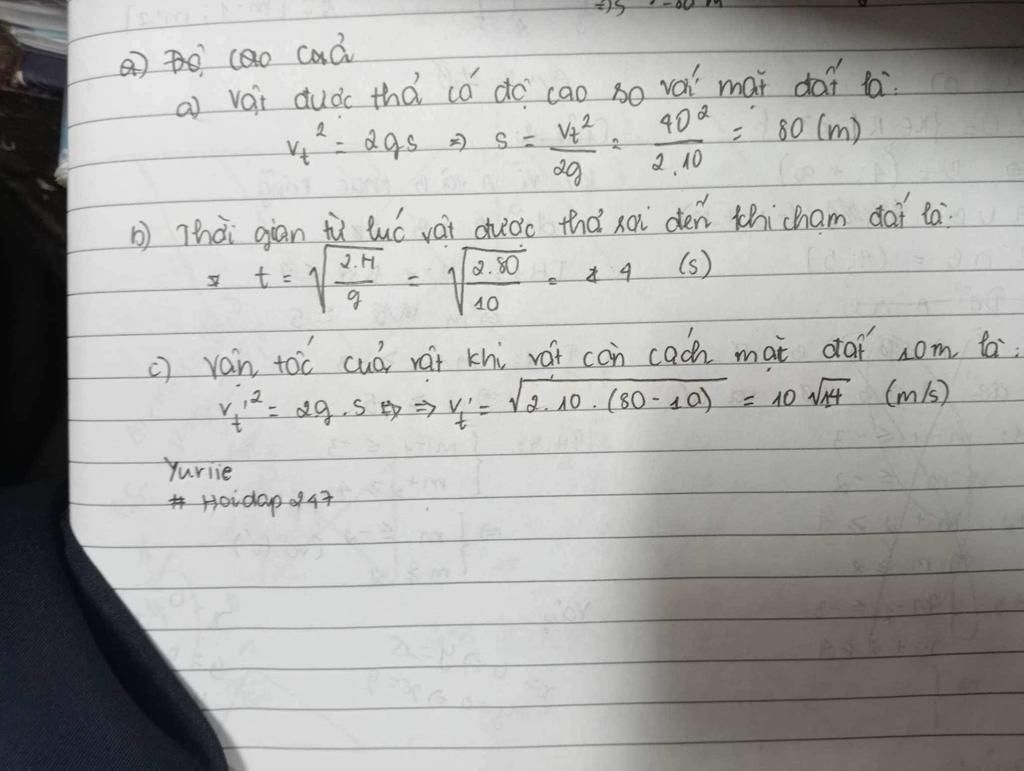 a) Độ cao cuả
a) Vật được thả có độ cao so với mặt đất là:
v_t^2 = 2gs => s = v_t^2/2g = 40^2/2.10 = 80 (m)
b) Thời gian từ lúc vật được thả rơi đến khi chạm đất là:
t = √(2.H/g) = √(2.80/10) = 4 (s)
c) Vận tốc cuả vật khi vật còn cách mặt đất 10m là:
v_t'^2 = 2g.s => v_t' = √(2.10.(80-10)) = 10√14 (m/s)
Yuriie
# Hoidap247